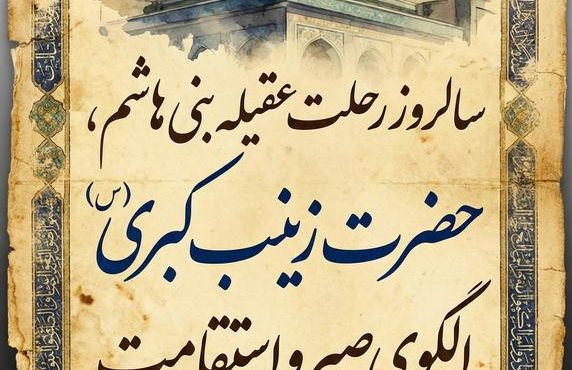 سالروز رحلت عقیله بنی هاشم،
حضرت زینب کبری (س)
الگوی صبر و استقامت